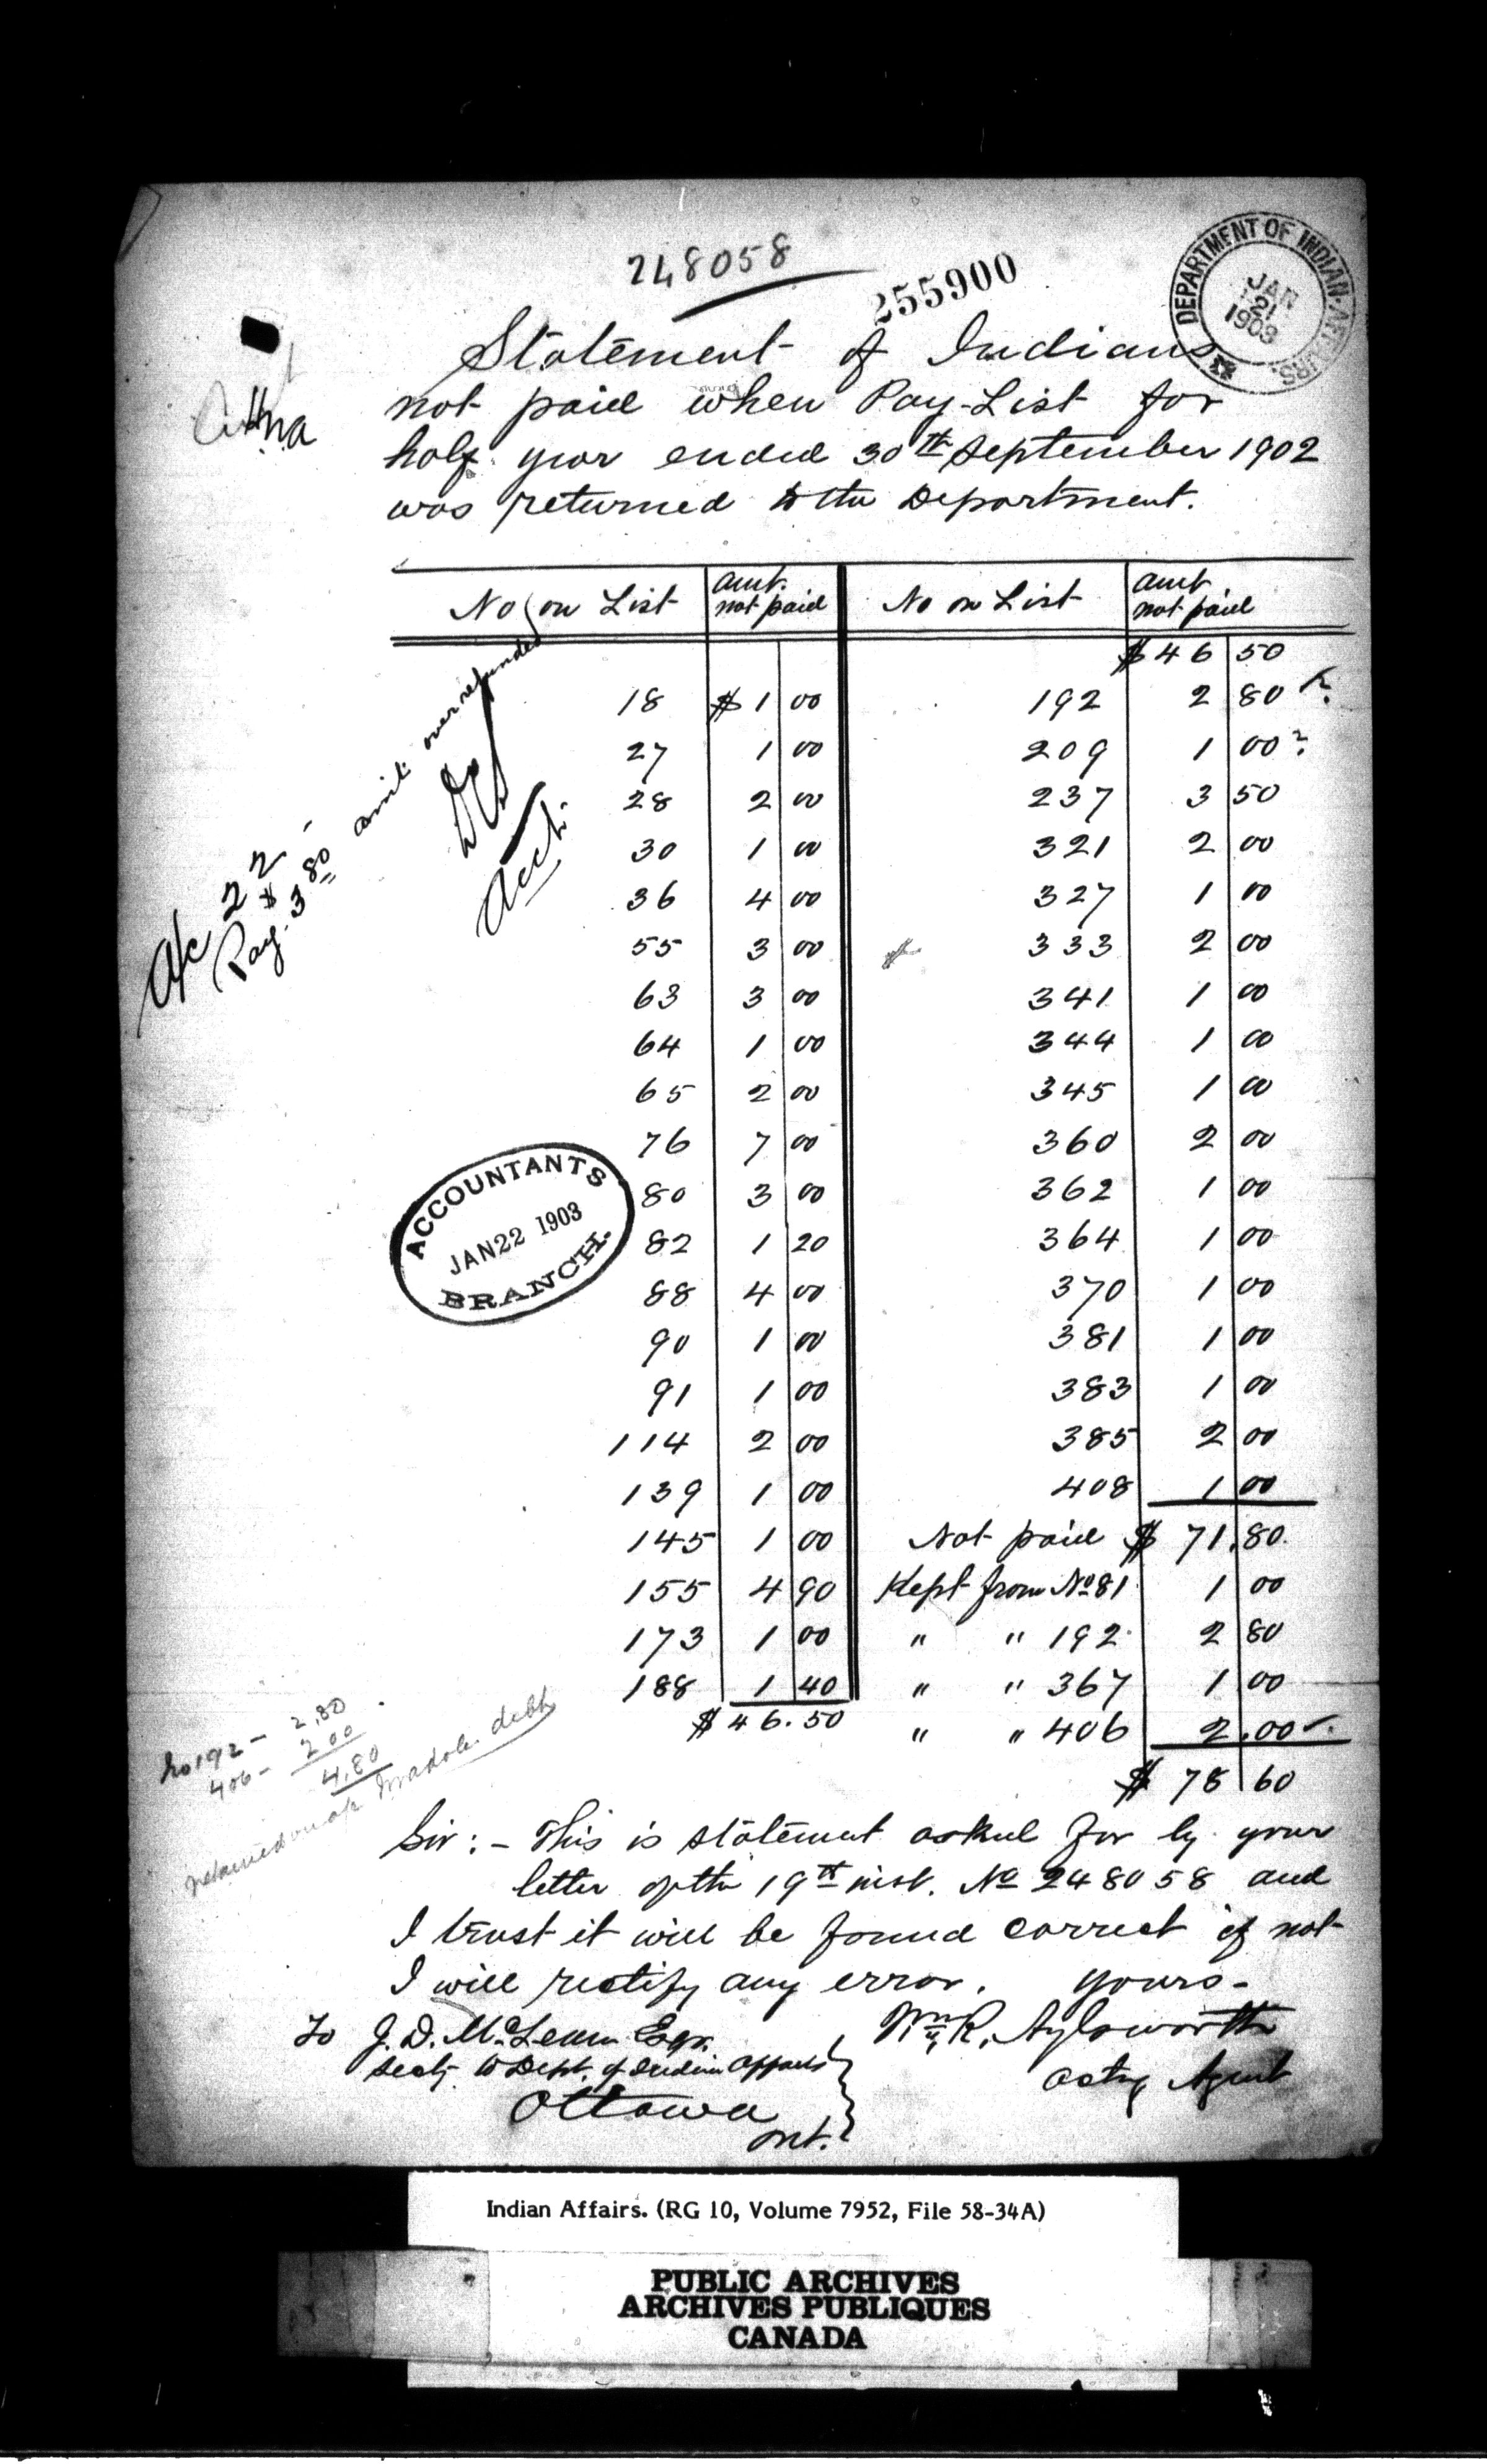 248058
255900
DEPARTMENT OF INDIAN AFFAIRS.
JAN
21
1903
Statement of Indians
not paid when Pay-List for
half year ended 30th September 1902
was returned to the Department.
No on List amt. not paid No on List amt not paid
$46 50
18 $1 00 192 2 80
27 1 00 209 1 00
28 2 00 237 3 50
30 1 00 321 2 00
36 4 00 327 1 00
55 3 00 333 2 00
63 3 00 341 1 00
64 1 00 344 1 00
65 2 00 345 1 00
76 7 00 360 2 00
80 3 00 362 1 00
82 1 20 364 1 00
88 4 00 370 1 00
90 1 00 381 1 00
91 1 00 383 1 00
114 2 00 385 2 00
139 1 00 408 1 00
145 1 00 Not paid $ 71.80
155 4 90 Kept from No 81 1 00
173 1 00 " " 192 2 80
188 1 40 " " 367 1 00
$46.50 " " 406 2.00
$ 78 60
A/c 22
Pay. $3 80 amt. over refunded
Acct.
ACCOUNTANTS
JAN 22 1903
BRANCH.
No 192 - 2.80
406 - 2 00
4.80
retained on a/c debt
Sir: - This is statement asked for by your
letter of the 19th inst. No 248058 and
I trust it will be found correct if not
I will rectify any error. Yours -
To J. D. McLean Esqr. Wm R. Aylsworth
Secty. to Dept. of Indian Affairs acting Agent
Ottawa
Ont.
Indian Affairs. (RG 10, Volume 7952, File 58-34A)
PUBLIC ARCHIVES
ARCHIVES PUBLIQUES
CANADA